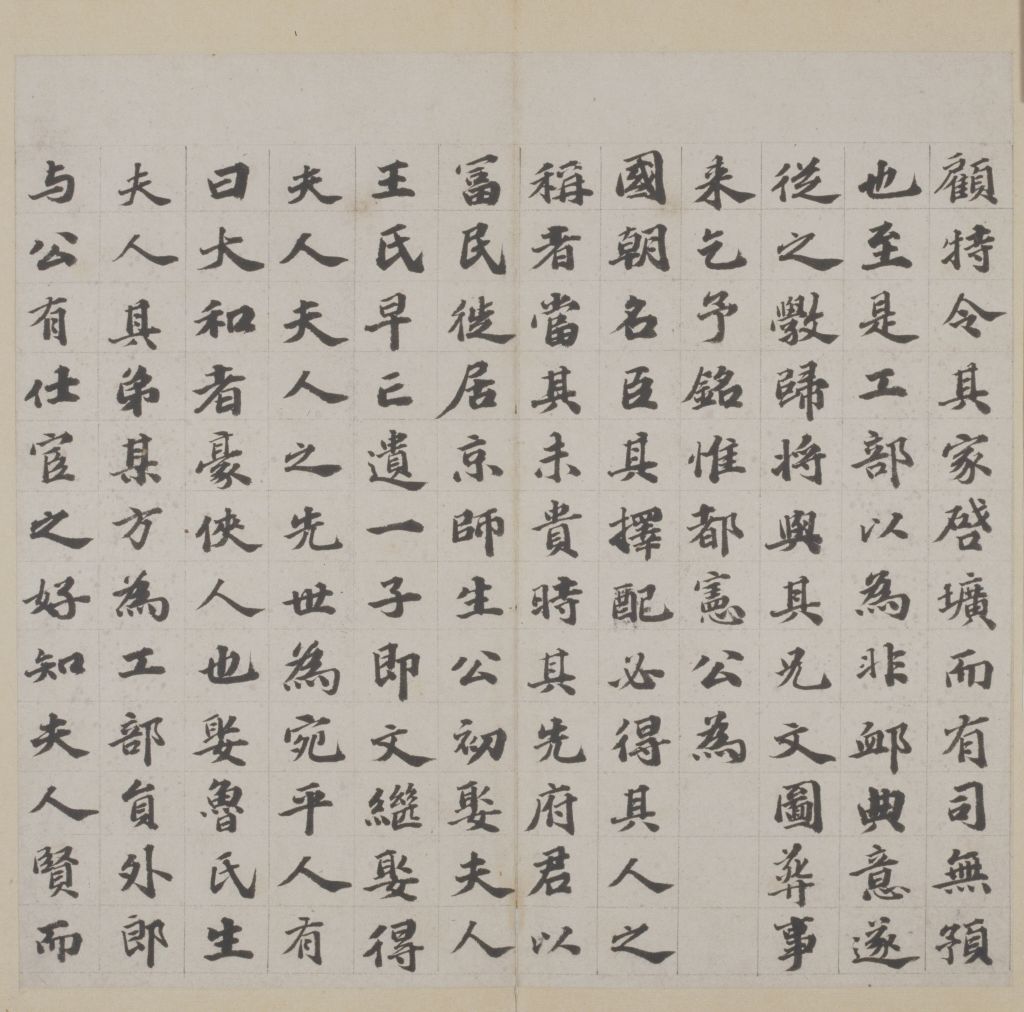 顧特令其家啓壙而有司無預
也至是工部以為非䘏典意遂
從之斅歸將與其兄文圖葬事
来乞予銘惟都憲公為
國朝名臣其擇配必得其人之
稱者當其未貴時其先府君以
冨民徙居京師生公初娶夫人
王氏早亡遺一子即文繼娶得
夫人夫人之先世為宛平人有
曰大和者豪俠人也娶魯氏生
夫人其弟某方為工部貟外郎
与公有仕宦之好知夫人賢而